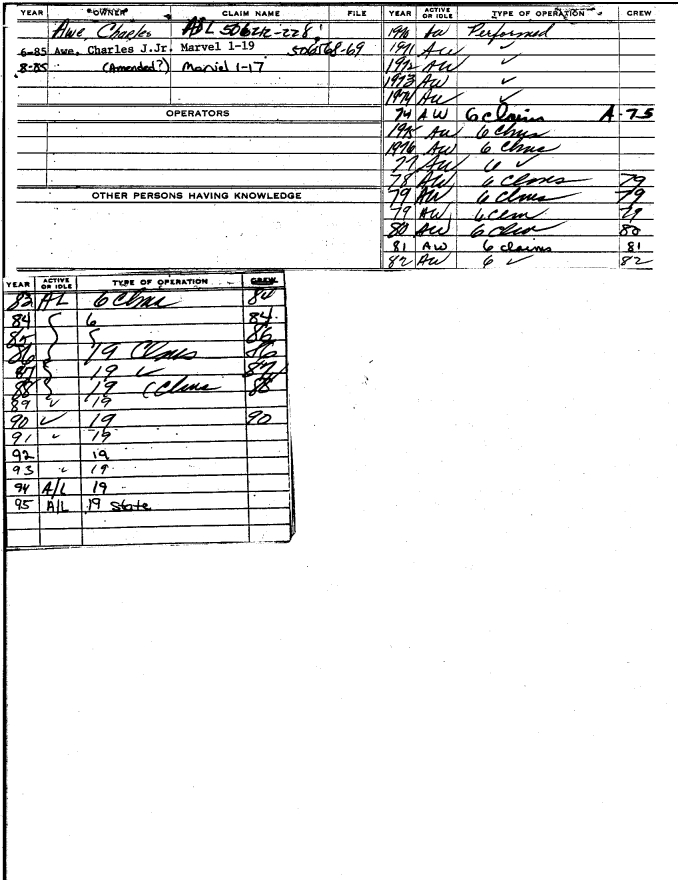 YEAR OWNER CLAIM NAME FILE
Awe, Charles ADL 506212-228
6-85 Awe, Charles J.Jr. Marvel 1-19 506168-69
8-85 (Amended?) Marvel 1-17
OPERATORS
OTHER PERSONS HAVING KNOWLEDGE
YEAR ACTIVE OR IDLE TYPE OF OPERATION CREW
1970 AW Performed
1971 AW ✓
1972 AW ✓
1973 AW ✓
1974 AW ✓
74 AW 6 claims A-75
1975 AW 6 clms
1976 AW 6 clms
77 AW 6 ✓
78 AW 6 Clms 79
79 AW 6 clms 79
79 AW 6 clm 79
80 AW 6 clm 80
81 AW 6 claims 81
82 AW 6 ✓ 82
YEAR ACTIVE OR IDLE TYPE OF OPERATION CREW
83 AL 6 Clms 84
84 6 84
85 86
86 19 Clms 86
87 19 ✓ 87
88 19 (Clms 88
89 ✓ 19
90 ✓ 19 90
91 ✓ 19
92 19
93 ✓ 19
94 A/L 19
95 A/L 19 State